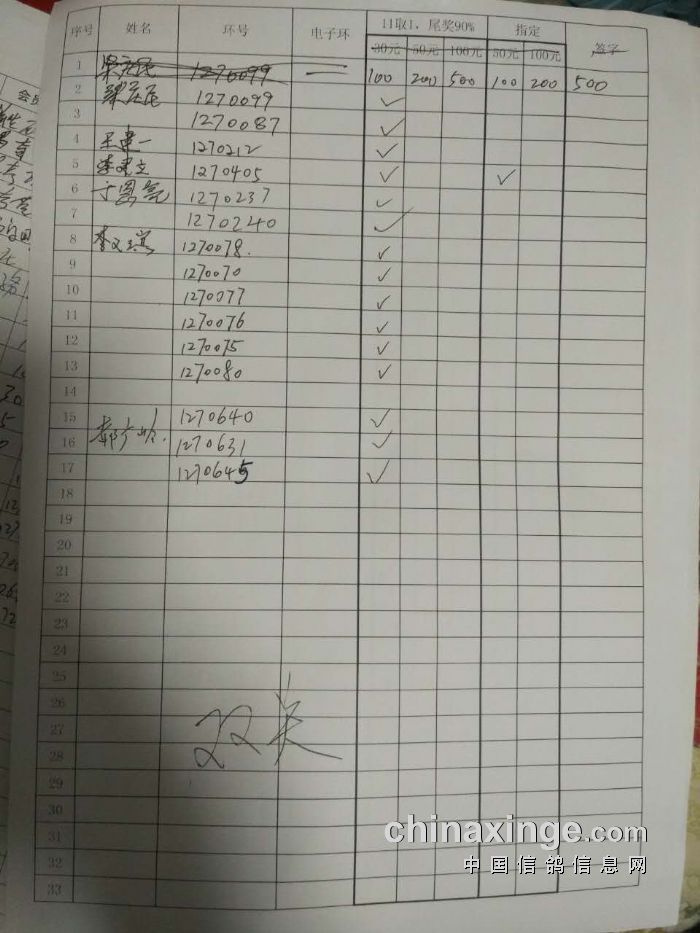 序号 姓名 环号 电子环 11取1、尾奖90% 指定 签字
30元 50元 100元 50元 100元
1 1270099 100 200 500 100 200 500
2 1270099 ✓
3 1270087 ✓
4 王建一 1270212 ✓
5 李建立 1270405 ✓ ✓
6 1270237 ✓
7 1270240 ✓
8 1270078. ✓
9 1270070 ✓
10 1270077 ✓
11 1270076 ✓
12 1270075 ✓
13 1270080 ✓
14
15 1270640 ✓
16 1270631 ✓
17 1270645 ✓
18
19
20
21
22
23
24
25
26
27 双关
28
29
30
31
32
33
chinaxinge.com
中国信鸽信息网